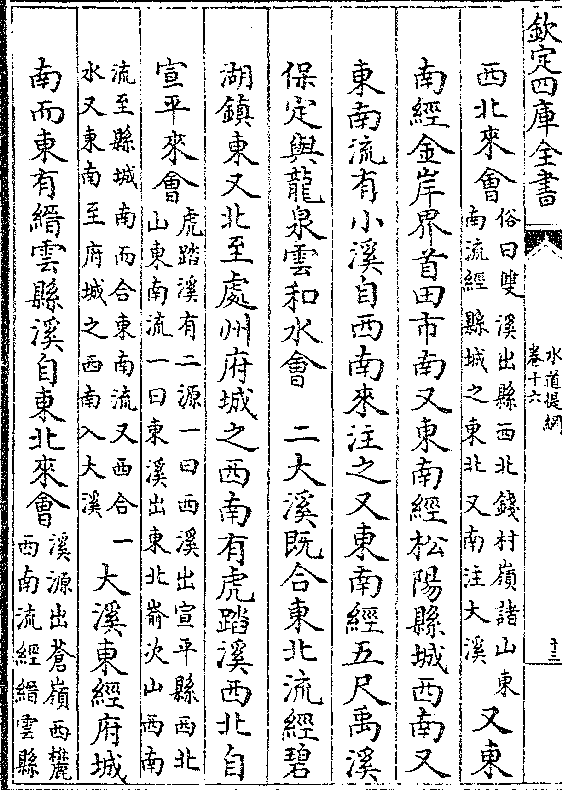 欽定四庫全書
水道提綱
卷十六
十三
西北來會
俗曰雙溪出縣西北錢村嶺諸山東
南流經縣城之東北又南注大溪
又東
南經金岸界首田市南又東南經松陽縣城西南又
東南流有小溪自西南來注之又東南經五尺禹溪
保定與龍泉雲和水會 二大溪既合東北流經碧
湖鎮東又北至處州府城之西南有虎踏溪西北自
宣平來會
虎踏溪有二源一曰西溪出宣平縣西北
山東南流一曰東溪出東北嵛次山西南
流至縣城南而合東南流又西合一
水又東南至府城之西南入大溪
大溪東經府城
南而東有縉雲縣溪自東北來會
溪源出蒼嶺西麓
西南流經縉雲縣